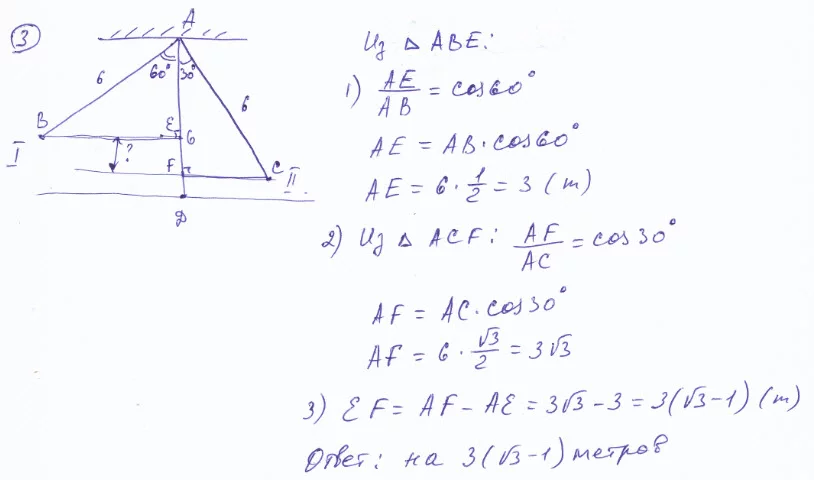 3
A
60° 30°
6
6
B
E
6
I
?
F
C
II
D
Из △ ABE:
1) AE/AB = cos 60°
AE = AB · cos 60°
AE = 6 · 1/2 = 3 (m)
2) Из △ ACF: AF/AC = cos 30°
AF = AC · cos 30°
AF = 6 · √3/2 = 3√3
3) EF = AF − AE = 3√3 − 3 = 3(√3 − 1) (m)
Ответ: на 3(√3 − 1) метров